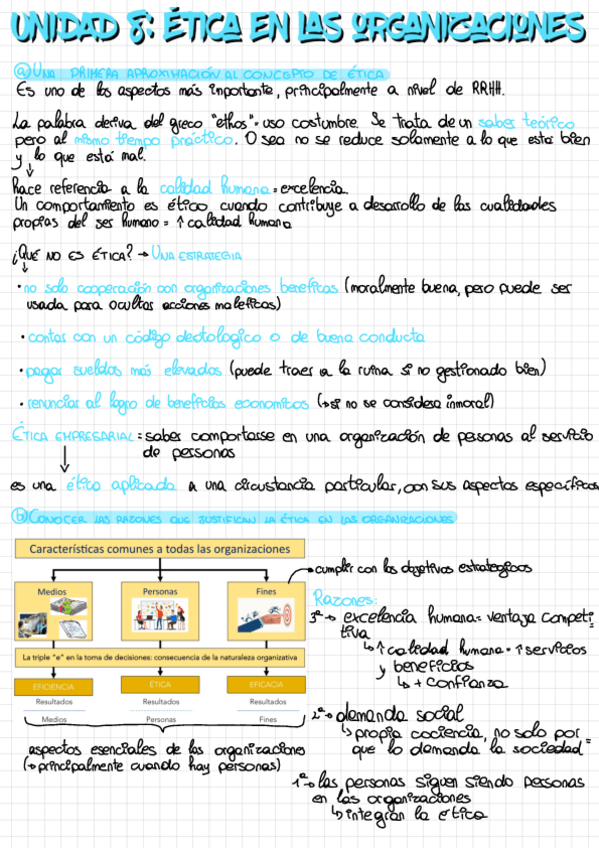 UNIDAD 8: ÉTICA EN LAS ORGANIZACIONES
a) UNA PRIMERA APROXIMACIÓN AL CONCEPTO DE ÉTICA
Es uno de los aspectos más importante, principalmente a nivel de RRHH.
La palabra deriva del greco "ethos"= uso costumbre. Se trata de un saber teórico
pero al mismo tiempo práctico. O sea no se reduce solamente a lo que está bien
y lo que está mal.
hace referencia a la calidad humana = excelencia.
Un comportamiento es ético cuando contribuye a desarrollo de las cualidades
propias del ser humano = ↑ calidad humana
¿QUÉ NO ES ÉTICA? → UNA ESTRATEGIA
· no solo cooperación con organizaciones beneficas (moralmente buena, pero puede ser
usada para ocultar acciones maleficas)
· contar con un código deotologico o de buena conducta
· pagar sueldos más elevados (puede traer a la ruina si no gestionado bien)
· renunciar al logro de beneficios economicos (→ si no se considera inmoral)
ÉTICA EMPRESARIAL = saber comportarse en una organización de personas al servicio
de personas
es una ético aplicada a una circustancia particular, con sus aspectos específicos
b) CONOCER LAS RAZONES QUE JUSTIFICAN LA ÉTICA EN LAS ORGANIZACIONES
Características comunes a todas las organizaciones
Medios Personas Fines
La triple "e" en la toma de decisiones: consecuencia de la naturaleza organizativa
EFICIENCIA ÉTICA EFICACIA
Resultados Resultados Resultados
Medios Personas Fines
aspectos esenciales de las organizaciones
(→ principalmente cuando hay personas)
→ cumplir con los objetivos estrategicos
Razones:
3ª → excelencia humana = ventaja competi
tiva
↳ ↑ calidad humana = ↑ servicios
y beneficios
↳ + confianza
2ª → demanda social
↳ propia cociencia, no solo por =
que lo demanda la sociedad
1ª → las personas siguen siendo personas
en las organizaciones
↳ integran la etica